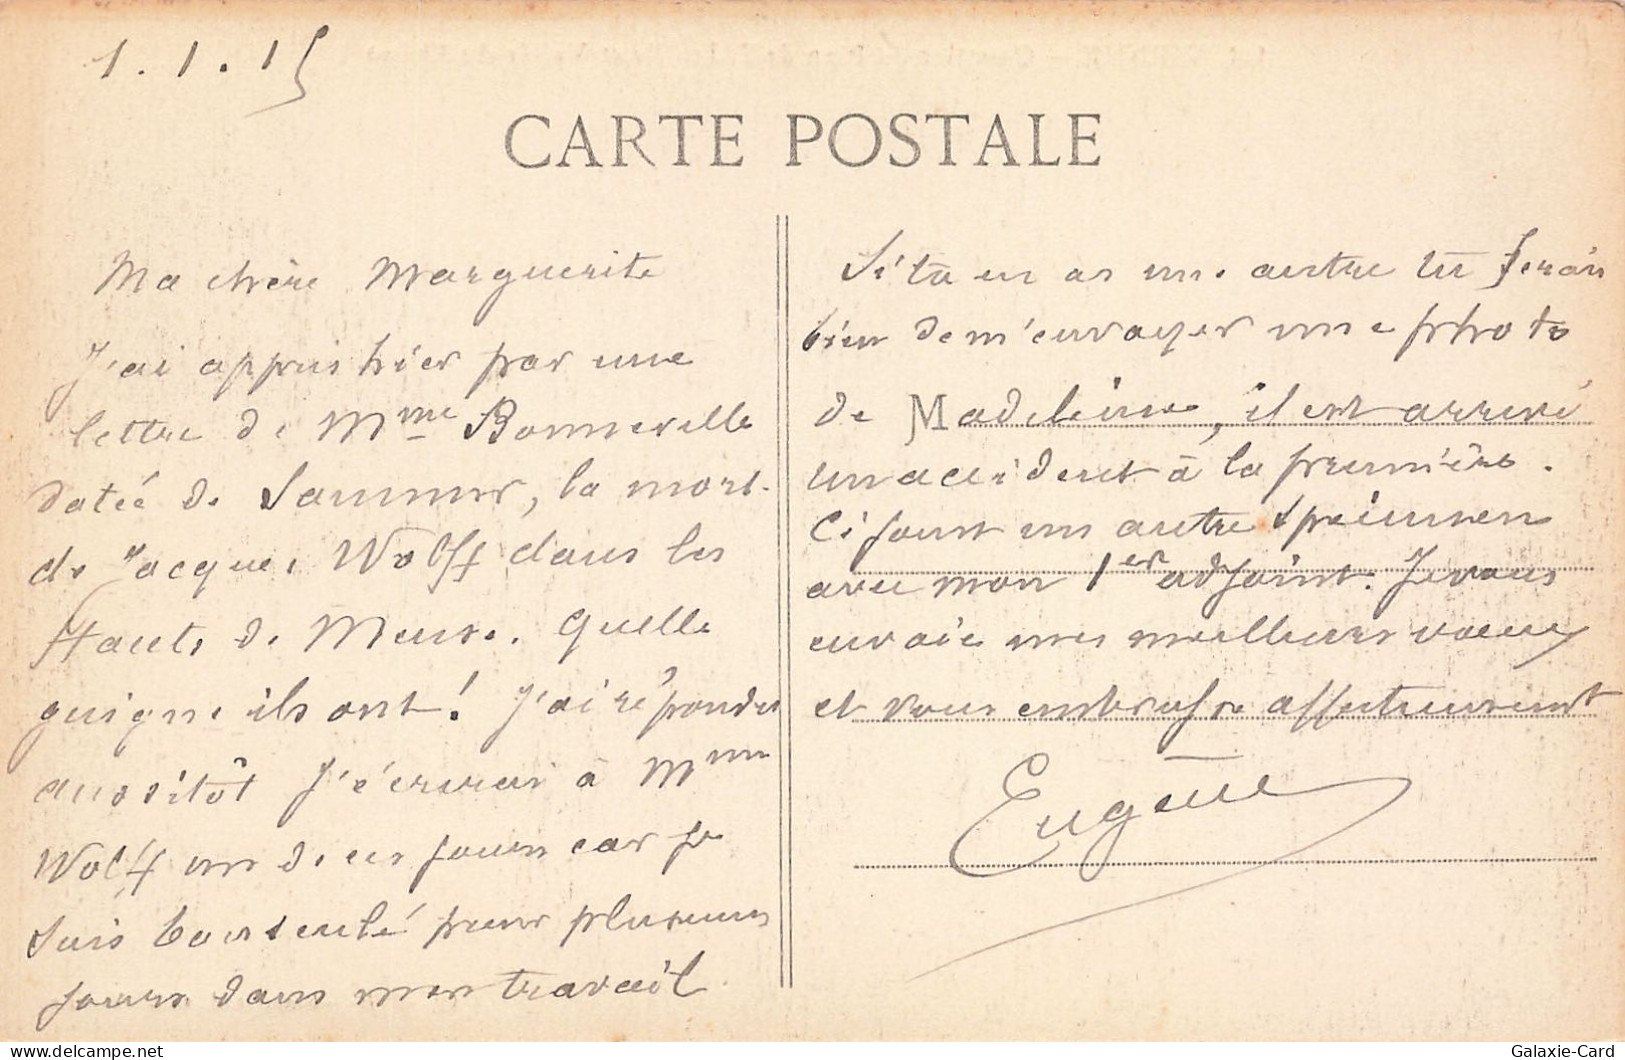 1.1.15
CARTE POSTALE
Ma chère Marguerite
J'ai appris hier par une
lettre de Mme Bonnerelle
datée de Saumur, la mort
de Jacques Wolff dans les
Hauts de Meuse. Quelle
guigne ils ont! J'ai répondu
aussitôt J'écrirai à Mme
Wolff un de ces jours car je
suis bousculé pour plusieurs
jours dans mon travail
Si tu en as une autre tu ferais
bien de m'envoyer une photo
de Madeleine, il est arrivé
un accident à la première.
Ci joint un autre spécimen
avec mon 1er adjoint. Je vous
envoie mes meilleurs vœux
et vous embrasse affectueusement
Eugène
Galaxie-Card